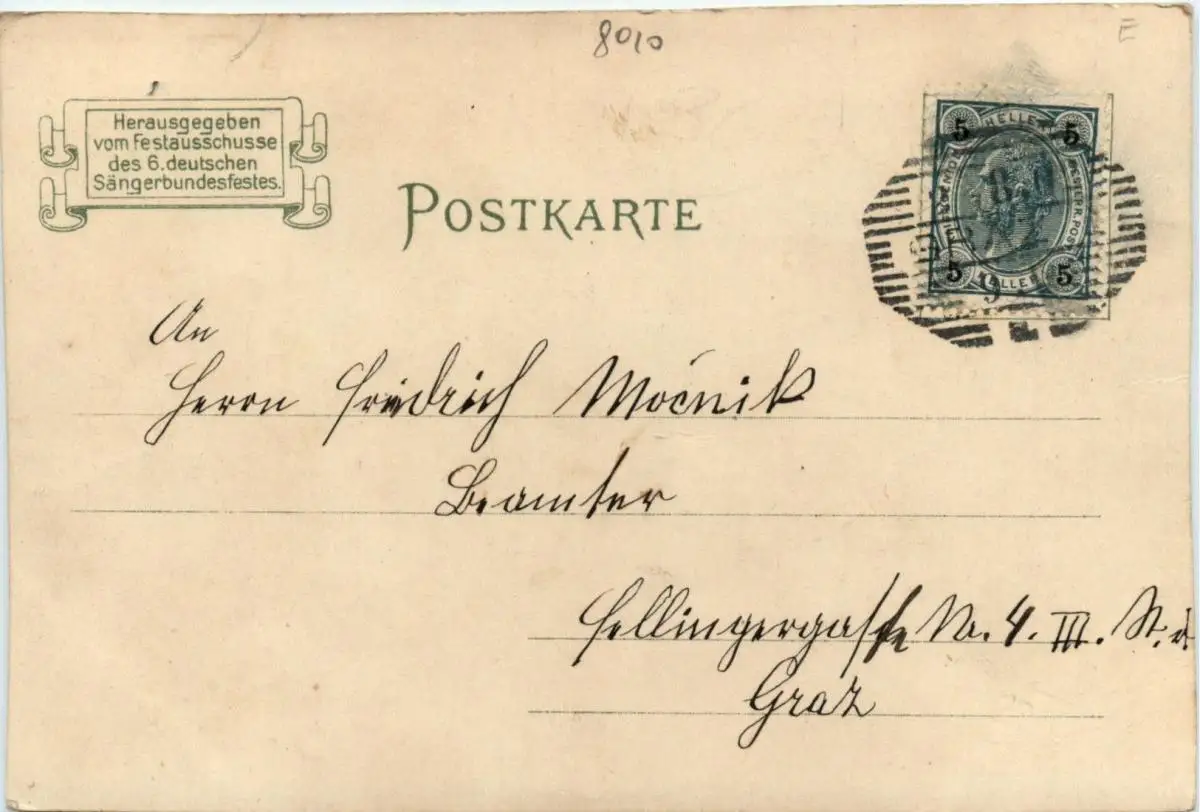 8010
E
Herausgegeben
vom Festausschusse
des 6. deutschen
Sängerbundesfestes.
POSTKARTE
5 HELLER 5
5 HELLER 5
An
Herrn Friedrich Močnik
Beamter
Fellingergasse No. 4. III. St.
Graz